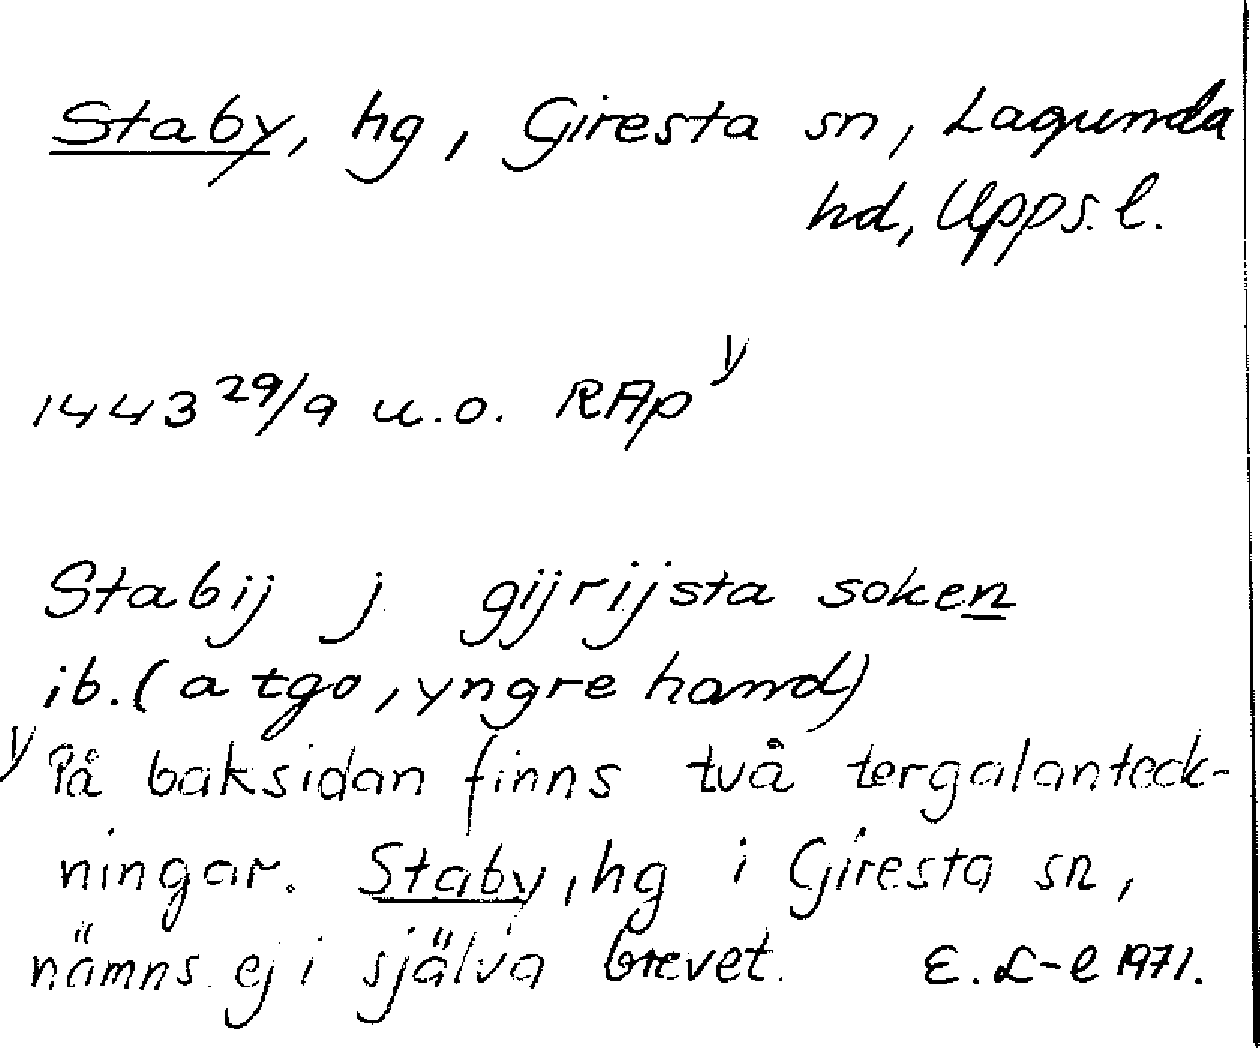 Staby, hg, Giresta sn, Lagunda
hd, Upps. l.
1443 29/9 u.o. RAp y
Stabij j gijrijsta soken
ib. (a tgo, yngre hand)
y På baksidan finns två tergalanteck-
ningar. Staby, hg i Giresta sn,
nämns ej i själva brevet. E. L-l 1971.